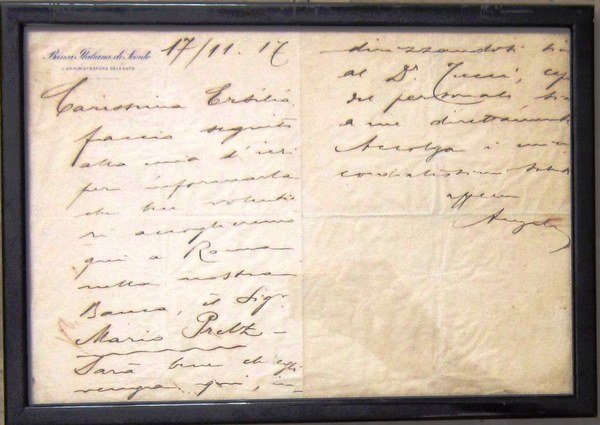 Banca Italiana di Sconto
L'AMMINISTRATORE DELEGATO
17/11.17
Carissima Ersilia
faccio seguito
alla mia d'ieri
per informarla
che ben volentie
ri accoglieremo
qui a Roma
nella nostra
Banca, il Sig.
Mario Pretz -
Sarà bene ch'egli
venga qui,
al Dr
del personale,
a me direttamente
Accolga i
cordialissimi
Angelo